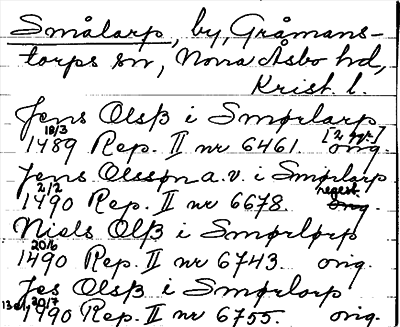 Smålarp, by, Gråmans-
torps sn, Norra Åsbo hd,
Krist. l.
Jens Olsß i Smørlarp
18/3 1489 Rep. II nr 6461. [2 ggr.] orig.
Jens Olssøn a.v. i Smørlarp
2/2 1490 Rep. II nr 6678. regest. orig.
Niels Olß i Smørlørp
20/6 1490 Rep. II nr 6743. orig.
Jes Olsß i Smørlarp
13 el. 20/7 1490 Rep. II nr 6755. orig.